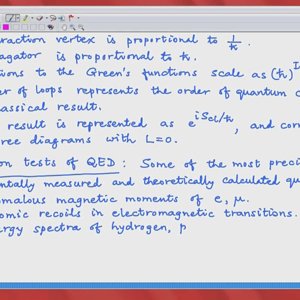 raction vertex is proportional to 1/ħ.
agator is proportional to ħ.
ions to the Green's functions scale as (ħ)
er of loops represents the order of quantum c
assical result.
result is represented as e^{iS_{cl}/ħ}, and corr
ree diagrams with L=0.
on tests of QED : Some of the most precis
entally measured and theoretically calculated qu
omalous magnetic moments of e, μ.
omic recoils in electromagnetic transitions.
ergy spectra of hydrogen, p